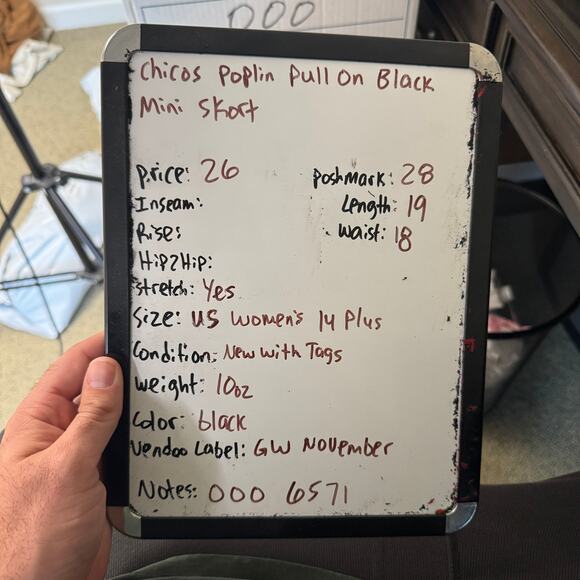 000
Chicos Poplin Pull On Black
Mini Skort
Price: 26
Poshmark: 28
Inseam:
Length: 19
Rise:
Waist: 18
Hip2Hip:
Stretch: Yes
Size: US Women's 14 Plus
Condition: New with Tags
Weight: 10oz
Color: black
Vendoo Label: GW November
Notes: 000 6571